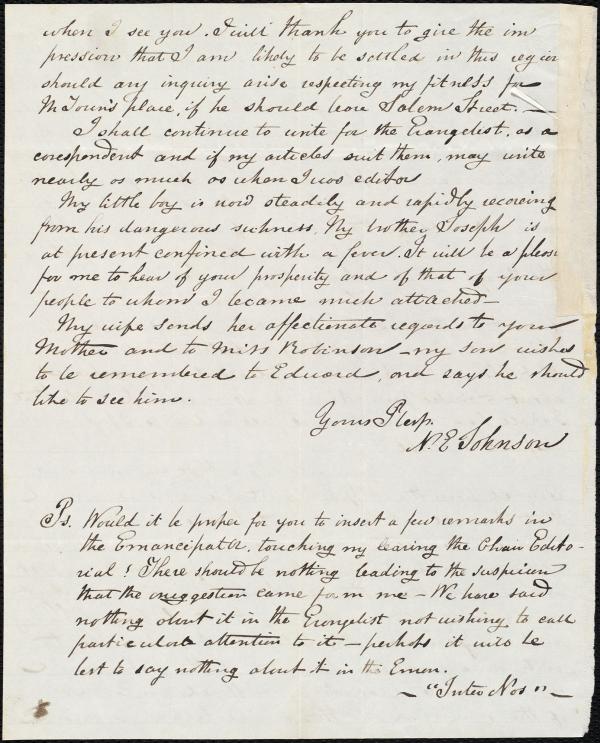 when I see you. I will thank you to give the im
pression that I am likely to be settled in this region
should any inquiry arise respecting my fitness for
Mr Towns place, if he should leave Salem Street. —
I shall continue to write for the Evangelist, as a
corespondent and if my articles suit them, may write
nearly as much as when I was editor
My little boy is now steadily and rapidly recovering
from his dangerous sickness. My brother Joseph is
at present confined with a fever. It will be a pleas
for me to hear of your prosperity and of that of your
people to whom I became much attached —
My wife sends her affectionate regards to your
Mother and to Miss Robinson — my son wishes
to be remembered to Edward, and says he should
like to see him.
Yours Resp.
N. E Johnson
Ps. Would it be proper for you to insert a few remarks in
the Emancipator, touching my leaving the Chair Edito-
rial? There should be nothing leading to the suspicion
that the suggestion came form me — We have said
nothing about it in the Evangelist not wishing to call
particular attention to it — perhaps it will be
best to say nothing about it in the Eman.
— "Inter Nos" —